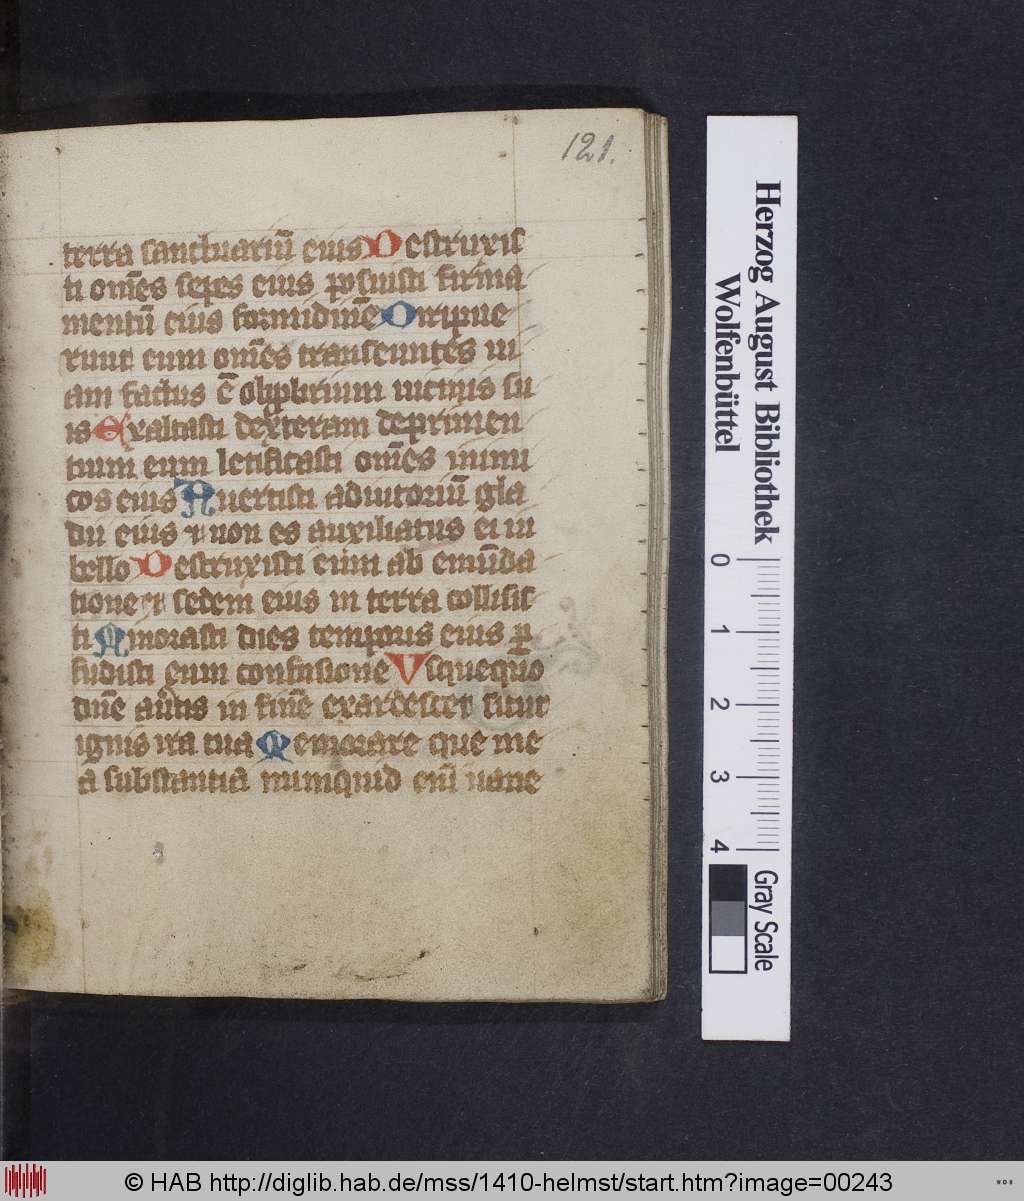 121.
terra sanctuariū eius Destruxis
ti om̄es sepes eius posuisti firma
mentū eius formidinē Diripue
runt eum om̄es transeuntes ui
am factus ē obprobrium uicinis su
is Exaltasti dexteram deprimen
tium eum letificasti om̄es inimi
cos eius Auertisti adiutoriū gla
dii eius et non es auxiliatus ei in
bello Destruxisti eum ab emūda
tione et sedem eius in terra collisis
ti Minorasti dies temporis eius ꝑ
fudisti eum confusione Usquequo
dn̄e au̅tis in finē exardescet sicut
ignis ira tua Memorare que me
a substantia numquid eni̅ uane
Herzog August Bibliothek
Wolfenbüttel
0 1 2 3 4
Gray Scale
© HAB http://diglib.hab.de/mss/1410-helmst/start.htm?image=00243